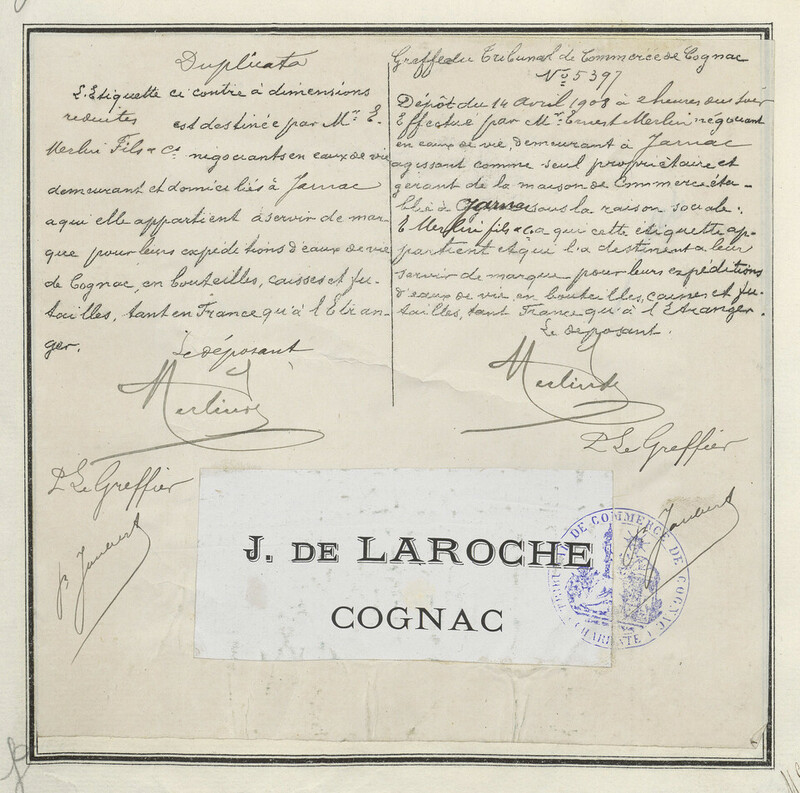 Duplicata
L'Etiquette ci contre à dimensions
reduites est destinée par Mr. E.
Merlin Fils & Cs negociants en eaux de vie
demeurant et domiciliés à Jarnac
a qui elle appartient à servir de mar-
que pour leurs expéditions d'eaux de vie
de Cognac, en bouteilles, caisses et fu-
tailles, tant en France qu'à l'Etran-
ger.
Le déposant
Merlin
Le Greffier
Joubert
Greffe du Tribunal de Commerce de Cognac
No. 5397
Dépôt du 14 avril 1908 à 2 heures du soir
Effectué par Mr. Ernest Merlin négociant
en eaux de vie demeurant à Jarnac
agissant comme seul propriétaire et
gérant de la maison de Commerce éta-
blie à Jarnac sous la raison sociale:
E Merlin fils & Ca qui cette étiquette ap-
partient et qui l'a destinent a leur
servir de marque pour leurs expéditions
d'eaux de vie, en bouteilles, caisses et fu-
tailles, tant France qu'à l'Etranger.
Le déposant.
Merlin
Le Greffier
Joubert
J. DE LAROCHE
COGNAC
TRIBUNAL DE COMMERCE DE COGNAC
CHARENTE